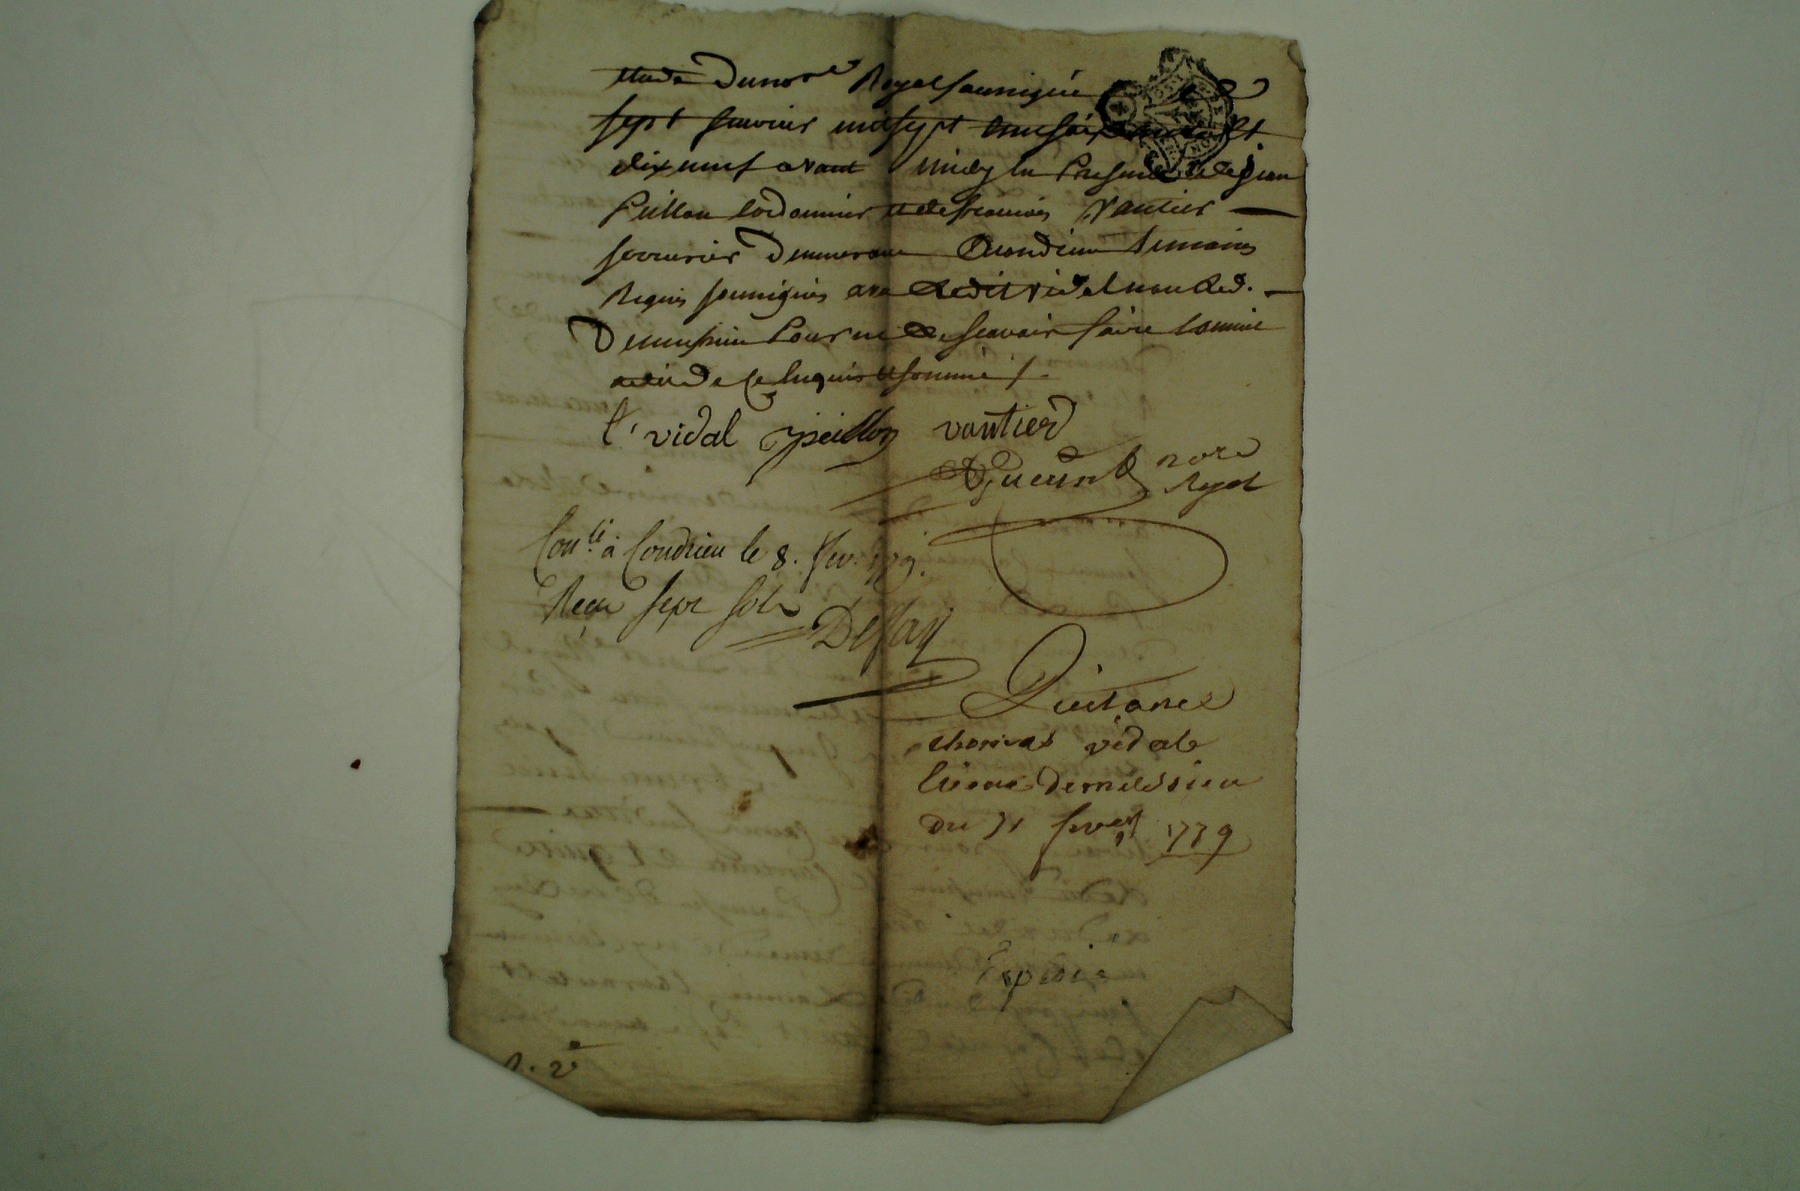 étude du no.re Royal soussigné le
sept fevrier mil sept cent soixante et
dix neuf avant midy en presence de Jean
Peillon cordonnier et de francois Vantier
serrurier demeurant a Condrieu temoins
Requis soussignés avec ledit vidal non led.
Demission pour ne scavoir faire comme
a dit de ce Enquis et sommé /.
C. vidal peillon vantier
Guerin no.re
Royal
Con.lé à Condrieu le 8. fev. 1779.
Reçu sept sols
Quitance
vidal
du fevrier 1779
Expedié